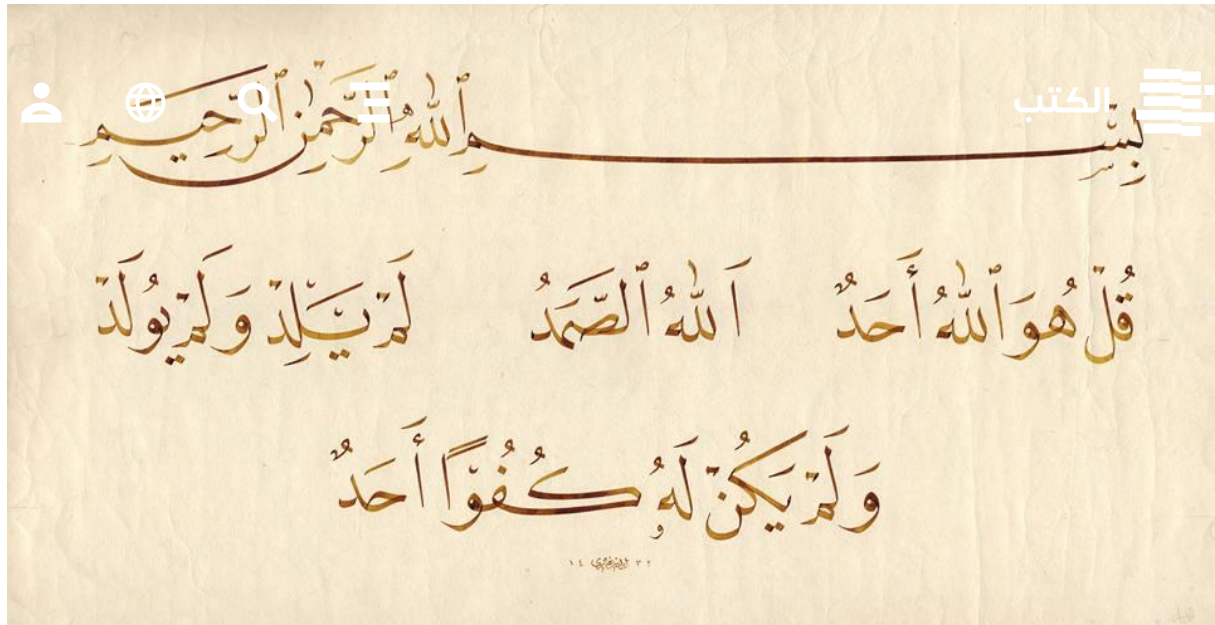 الكتب
بِسْمِ ٱللهِ ٱلرَّحْمٰنِ ٱلرَّحِيمِ
قُلْ هُوَ ٱللّٰهُ أَحَدٌ اَللّٰهُ ٱلصَّمَدُ لَمْ يَلِدْ وَلَمْ يُولَدْ
وَلَمْ يَكُنْ لَهُ كُفُوًا أَحَدٌ